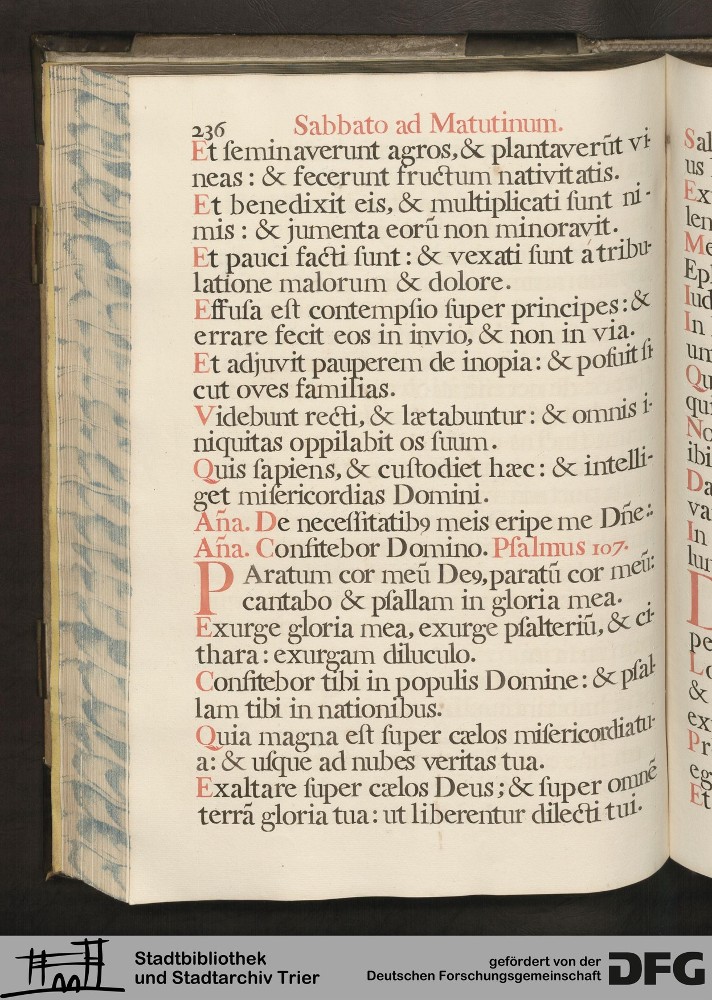 236 Sabbato ad Matutinum.
Et ſeminaverunt agros, & plantaverūt vi-
neas : & fecerunt fructum nativitatis.
Et benedixit eis, & multiplicati ſunt ni-
mis : & jumenta eorū non minoravit.
Et pauci facti ſunt : & vexati ſunt á tribu-
latione malorum & dolore.
Effuſa eſt contempſio ſuper principes : &
errare fecit eos in invio, & non in via.
Et adjuvit pauperem de inopia : & poſuit ſi-
cut oves familias.
Videbunt recti, & lætabuntur : & omnis i-
niquitas oppilabit os ſuum.
Quis ſapiens, & cuſtodiet hæc : & intelli-
get miſericordias Domini.
Aña. De neceſſitatibꝯ meis eripe me Dñe:.
Aña. Conſitebor Domino. Pſalmus 107.
PAratum cor meū Deꝯ, paratū cor meū:
cantabo & pſallam in gloria mea.
Exurge gloria mea, exurge pſalteriū, & ci-
thara : exurgam diluculo.
Conſitebor tibi in populis Domine : & pſal-
lam tibi in nationibus.
Quia magna eſt ſuper cælos miſericordia tu-
a : & uſque ad nubes veritas tua.
Exaltare ſuper cælos Deus ; & ſuper omnē
terrā gloria tua : ut liberentur dilecti tui.
Sal
us
Ex
len
Me
Ep
Iud
In
um
Qu
qui
No
ibi
Da
va
In
lur
D
pe
Lo
&
ex
Pr
eg
Et
Stadtbibliothek
und Stadtarchiv Trier
gefördert von der
Deutschen Forschungsgemeinschaft
DFG